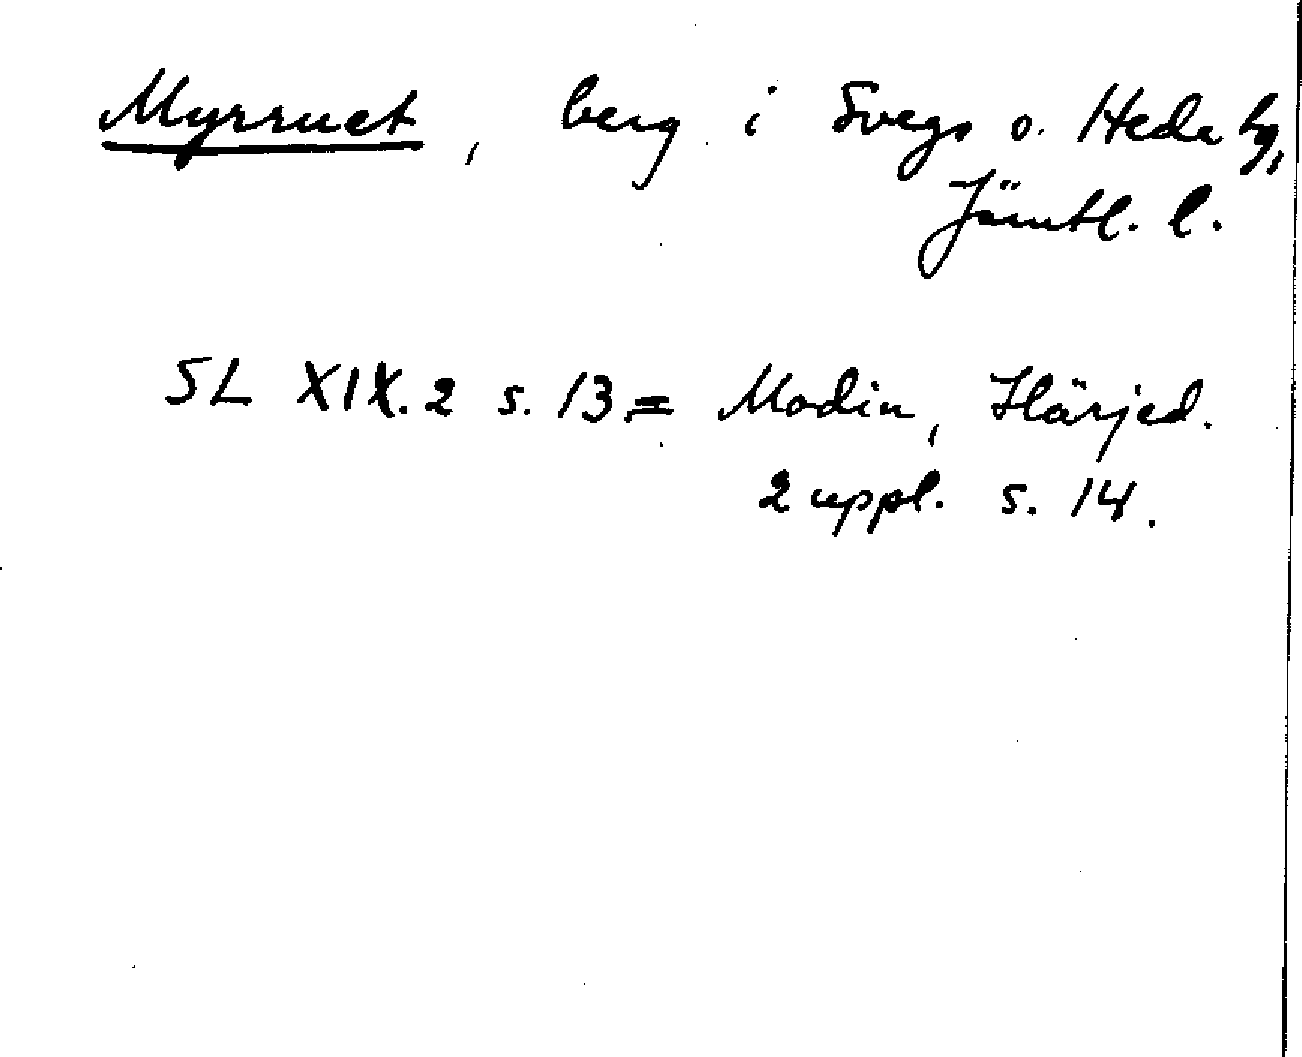 Myrruet, berg i Svegs o. Heda hg,
Jämtl. l.
SL XIX.2 s. 13 = Modin, Härjed.
2 uppl. s. 14.